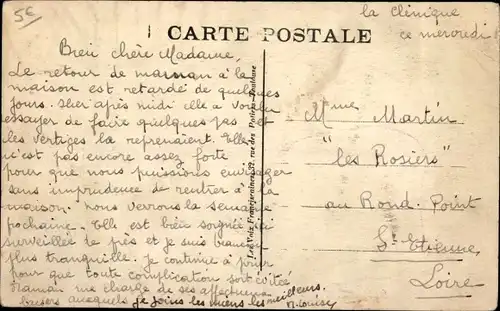 5€
CARTE POSTALE
la Clinique
ce mercredi
Bien chère Madame,
Le retour de maman à la
maison est retardé de quelques
jours. Hier après midi elle a voulu
essayer de faire quelques pas et
les vertiges la reprenaient. Elle
n'est pas encore assez forte
pour que nous puissions envisager
sans imprudence de rentrer à la
maison. nous verrons la semaine
prochaine. Elle est bien soignée et
surveillée de près et je suis beaucoup
plus tranquille. Je continue à
pour que toute complication soit évitée
Maman me charge de ses affectueux
baisers auxquels je joins les miens les meilleurs.
M. Louise
Mme Martin
"les Rosiers"
au Rond-Point
St Etienne
Loire